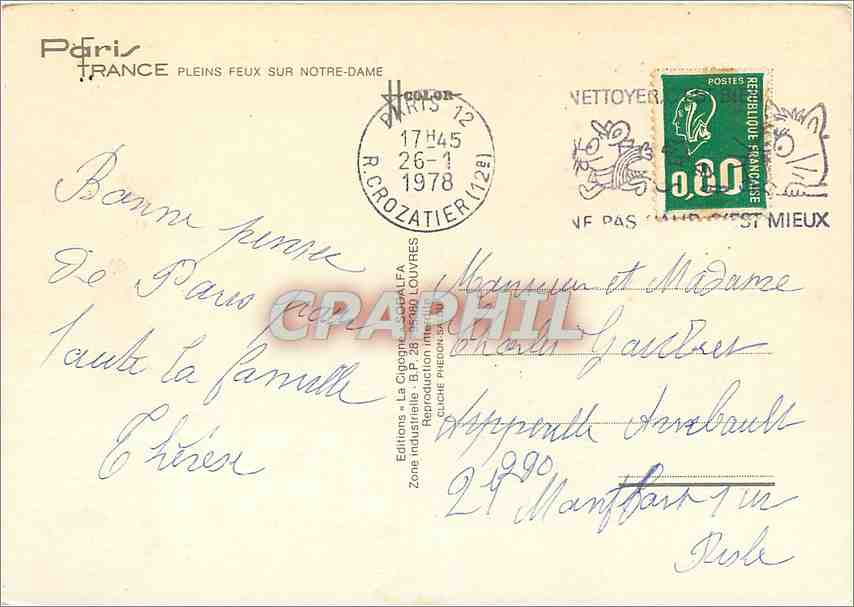 Paris
FRANCE PLEINS FEUX SUR NOTRE-DAME
COLOR
PARIS 12
17H45
26-1
1978
R. CROZATIER (12e)
NETTOYER, C'EST BIEN
NE PAS SALIR C'EST MIEUX
POSTES
REPUBLIQUE FRANÇAISE
0,80
Bonne pensée
de Paris pour
toute la famille
Thérèse
Editions « La Cigogne » SODALFA
Zone industrielle - B.P. 28 - 95380 LOUVRES
Reproduction interdite
CLICHE PHEDON-SALOU
CPAPHIL
Monsieur et Madame
Charles
Appeville Annebault
27290
Montfort sur
Risle